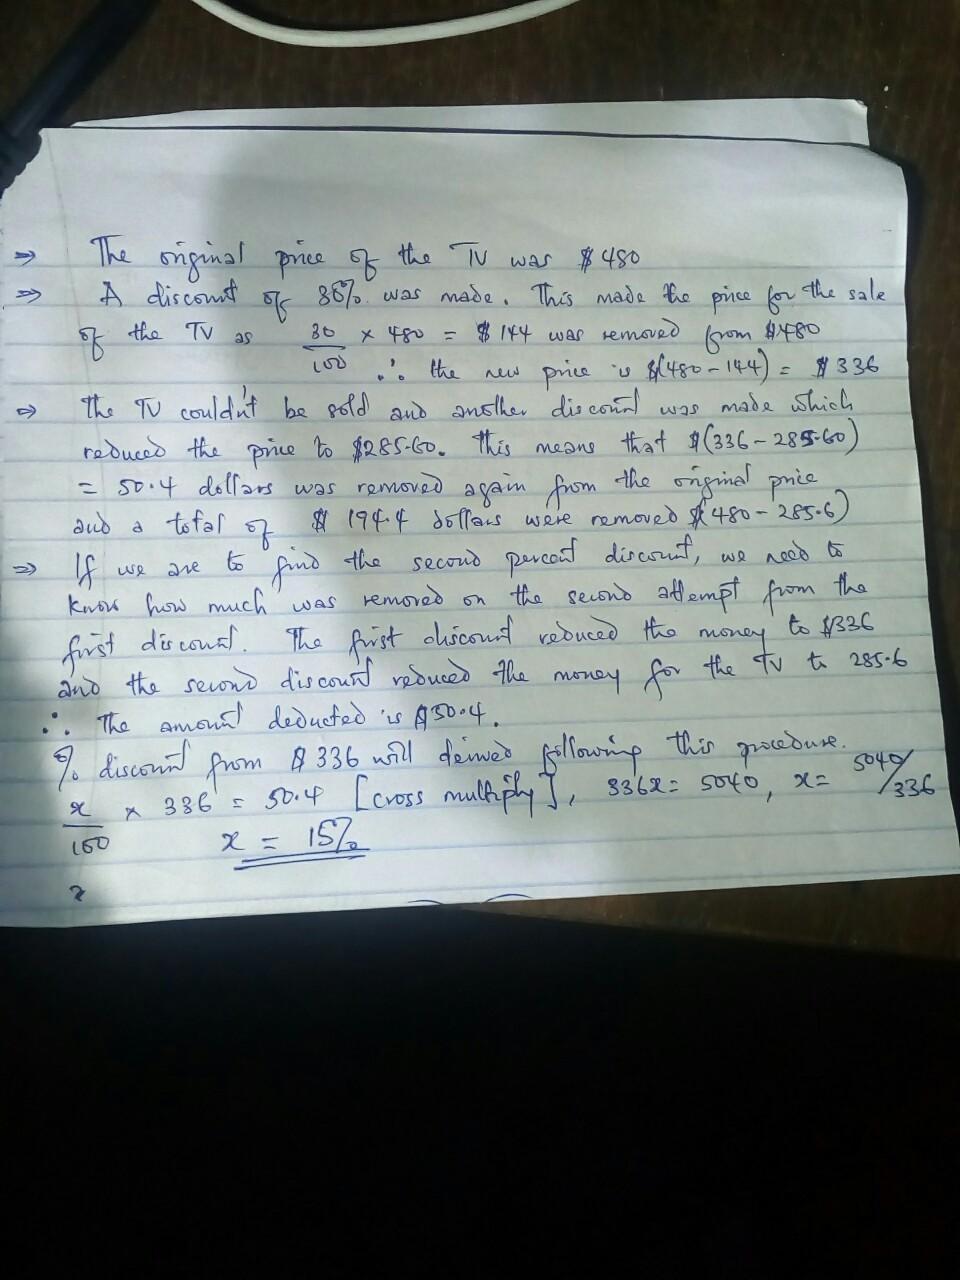 ⇒ The original price of the TV was $480
⇒ A discount of 30% was made. This made the price for the sale
of the TV as 30/100 × 480 = $144 was removed from $480
∴ the new price is $(480-144) = $336
⇒ The TV couldn't be sold and another discount was made which
reduced the price to $285.60. This means that $(336-285.60)
= 50.4 dollars was removed again from the original price
and a total of $194.4 dollars were removed $(480-285.6)
⇒ If we are to find the second percent discount, we need to
know how much was removed on the second attempt from the
first discount. The first discount reduced the money to $336
and the second discount reduced the money for the TV to 285.6
∴ The amount deducted is $50.4.
% discount from $336 will derived following this procedure.
x/100 × 336 = 50.4 [cross multiply], 336x = 5040, x = 5040/336
x = 15%